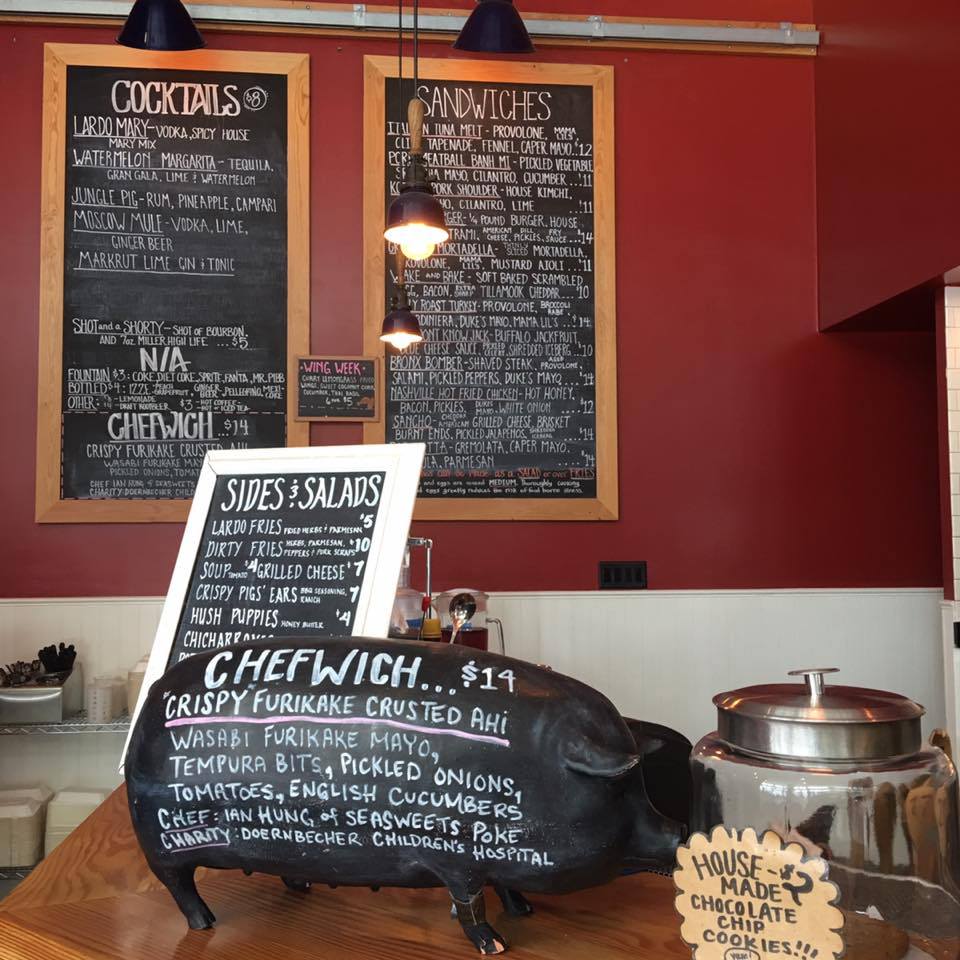 COCKTAILS $8
LARDO MARY- VODKA, SPICY HOUSE
MARY MIX
WATERMELON MARGARITA - TEQUILA,
GRAN GALA, LIME & WATERMELON
JUNGLE PIG- RUM, PINEAPPLE, CAMPARI
MOSCOW MULE- VODKA, LIME,
GINGER BEER
MARKRUT LIME GIN & TONIC
SHOT and a SHORTY- SHOT OF BOURBON,
AND 7oz. MILLER HIGH LIFE ...$5
N/A
FOUNTAIN $3: COKE, DIET COKE, SPRITE, FANTA, MR. PIBB
BOTTLED $4: IZZE- PEACH GRAPEFRUIT, GINGER BEER, PELLEGRINO, MEXI COKE
OTHER - LEMONADE
DRAFT ROOTBEER $3 - HOT COFFEE-
HOT or ICED TEA-
CHEFWICH...$14
CRISPY FURIKAKE CRUSTED AHI
WASABI FURIKAKE MAYO
PICKLED ONIONS, TOMAT
CHEF: IAN HUNG of SEASWEETS
CHARITY: DOERNBECHER CHILD
WING WEEK:
CURRY LEMONGRASS FRIED
WINGS, SWEET COCONUT CURRY,
CUCUMBER, THAI BASIL
$5
SANDWICHES
TUNA MELT - PROVOLONE, MAMA LIL'S
TAPENADE, FENNEL, CAPER MAYO. $12
PORK MEATBALL BANH MI - PICKLED VEGETABLE
MAYO, CILANTRO, CUCUMBER ...$11
PORK SHOULDER - HOUSE KIMCHI,
CILANTRO, LIME ...$11
- 1/4 POUND BURGER, HOUSE
AMERICAN CHEESE, DILL PICKLES, FRY SAUCE ...$14
MORTADELLA - MORTADELLA,
PROVOLONE, MAMA LIL'S, MUSTARD AIOLI ...$11
WAKE AND BAKE - SOFT BAKED SCRAMBLED
BACON, EXTRA SHARP TILLAMOOK CHEDDAR...$10
ROAST TURKEY - PROVOLONE, BROCCOLI RABE
DUKE'S MAYO, MAMA LIL'S ...$14
DONT KNOW JACK- BUFFALO JACKFRUIT,
BLUE CHEESE SAUCE, PICKLED CELERY, SHREDDED ICEBERG ...$10
BRONX BOMBER- SHAVED STEAK, AGED PROVOLONE,
SALAMI, PICKLED PEPPERS, DUKE'S MAYO ...$14
NASHVILLE HOT FRIED CHICKEN - HOT HONEY,
BACON, PICKLES, DUKE'S MAYO, WHITE ONION ...$12
SANCHO- CHEDDAR AMERICAN GRILLED CHEESE, BRISKET
BURNT ENDS, PICKLED JALAPEÑOS, SHREDDED ICEBERG ...$14
GREMOLATA, CAPER MAYO,
PARMESAN ...$14
can be made as a SALAD or over FRIES
and eggs are served MEDIUM. Thoroughly cooking
eggs greatly reduces the risk of food borne illness.
SIDES & SALADS
LARDO FRIES FRIED HERBS & PARMESAN $5
DIRTY FRIES HERBS, PARMESAN, PEPPERS & PORK SCRAPS $10
SOUP TOMATO $4 GRILLED CHEESE $7
CRISPY PIGS' EARS BBQ SEASONING, RANCH 7
HUSH PUPPIES HONEY BUTTER $4
CHICHARRONES
CHEFWICH...$14
"CRISPY FURIKAKE CRUSTED AHI
WASABI FURIKAKE MAYO,
TEMPURA BITS, PICKLED ONIONS,
TOMATOES, ENGLISH CUCUMBERS
CHEF: IAN HUNG of SEASWEETS POKE
CHARITY: DOERNBECHER CHILDREN'S HOSPITAL
HOUSE- $?
MADE
CHOCOLATE
CHIP
COOKIES!!!
YUM!